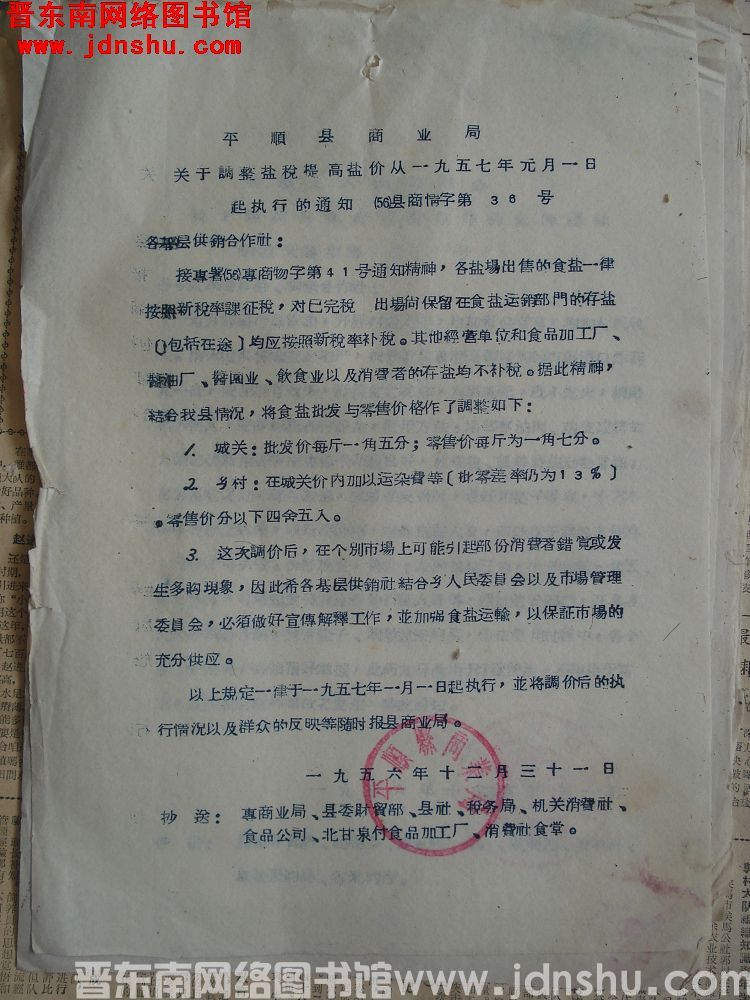 晋东南网络图书馆
www.jdnshu.com
平順县商业局
关于調整盐税提高盐价从一九五七年元月一日
起执行的通知 (56)县商情字第36号
各基层供銷合作社：
接專署(56)專商物字第41号通知精神，各盐場出售的食盐一律
按照新税率課征税，对已完税 出場尚保留在食盐运銷部門的存盐
(包括在途)均应按照新税率补税。其他經营单位和食品加工厂、
醬油厂、醬园业、飲食业以及消費者的存盐均不补税。据此精神，
結合我县情况，将食盐批发与零售价格作了調整如下：
1. 城关：批发价每斤一角五分；零售价每斤为一角七分。
2. 乡村：在城关价内加以运杂費等〔批零差率仍为13%〕
，零售价分以下四舍五入。
3. 这次調价后，在个別市場上可能引起部份消費者錯覚或发
生多购現象，因此希各基层供銷社結合乡人民委員会以及市場管理
委員会，必须做好宣傳解釋工作，並加强食盐运輸，以保証市場的
充分供应。
以上規定一律于一九五七年一月一日起执行，並将調价后的执
行情况以及群众的反映等随时报县商业局。
平順縣商業局
一九五六年十二月三十一日
抄送：專商业局、县委財貿部、县社、税务局、机关消費社、
食品公司、北甘泉付食品加工厂、消費社食堂。
晋东南网络图书馆www.jdnshu.com